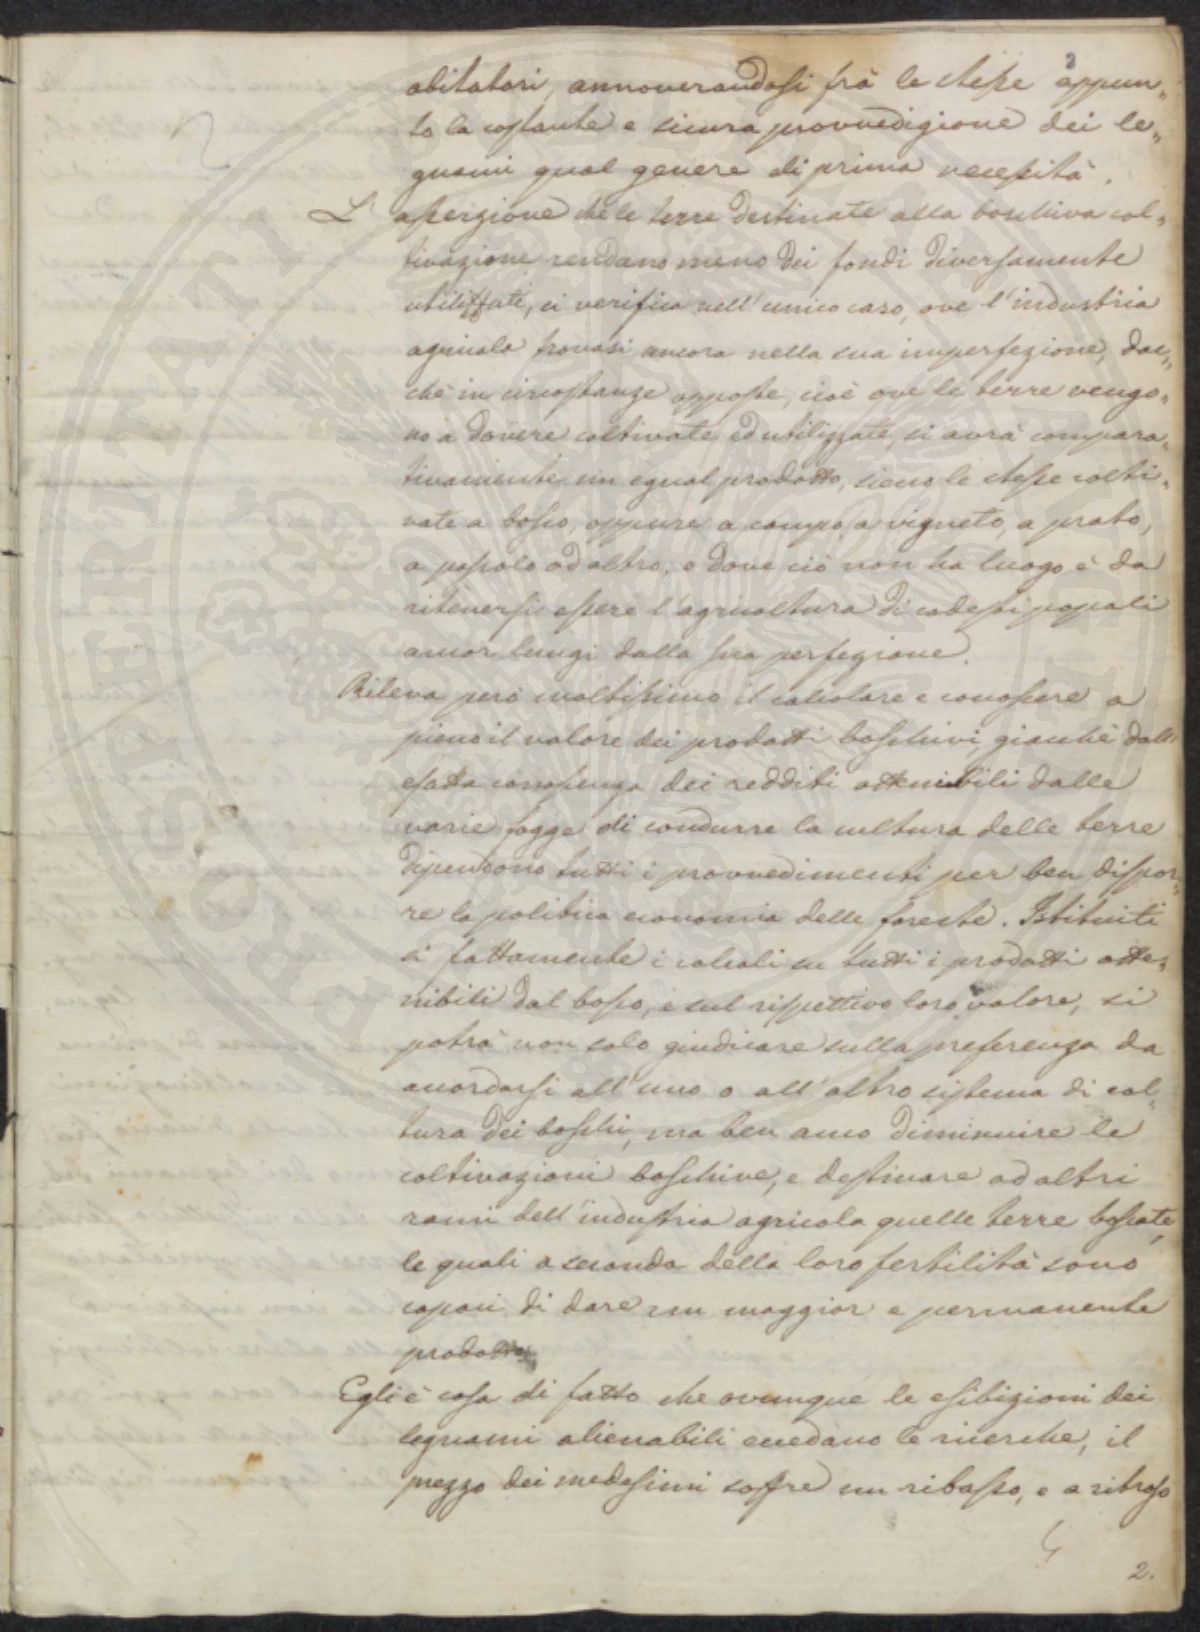 2
abitatori, annoverandosi frà le stesse appun„
to la costante e sicura provvedigione dei le„
gnami qual genere di prima necessità.
L'asserzione che le terre destinate alla boschiva col„
tivazione rendano meno dei fondi diversamente
utilizzati, si verifica nell'unico caso, ove l'industria
agricola trovasi ancora nella sua imperfezione, dac„
chè in circostanze opposte, cioè ove le terre vengo„
no a dovere coltivate ed utilizzate, si avrà compara„
tivamente un egual prodotto, sieno le stesse colti„
vate a bosco, oppure a campo, a vigneto, a prato,
a pascolo od altro, e dove ciò non ha luogo è da
ritenersi essere l'agricoltura di codesti popoli
ancor lungi dalla sua perfezione.
Rileva però moltissimo il calcolare e conoscere a
pieno il valore dei prodotti boschivi, giacchè dall'
esatta conoscenza dei redditi ottenibili dalle
varie fogge di condurre la cultura delle terre
dipendono tutti i provvedimenti per ben dispor„
re la politica economia delle foreste. Istituiti
si fattamente i calcoli su tutti i prodotti otte„
nibili dal bosco, e sul rispettivo loro valore, si
potrà non solo giudicare sulla preferenza da
accordarsi all'uno o all'altro sistema di col„
tura dei boschi, ma ben anco diminuire le
coltivazioni boschive, e destinare ad altri
rami dell'industria agricola quelle terre boscate,
le quali a seconda della loro fertilità sono
capaci di dare un maggior e permanente
prodotto.
Egli è cosa di fatto che ovunque le esibizioni dei
legnami alienabili eccedano le ricerche, il
prezzo dei medesimi soffre un ribasso, e a ritroso
2.
PROSPERITATI